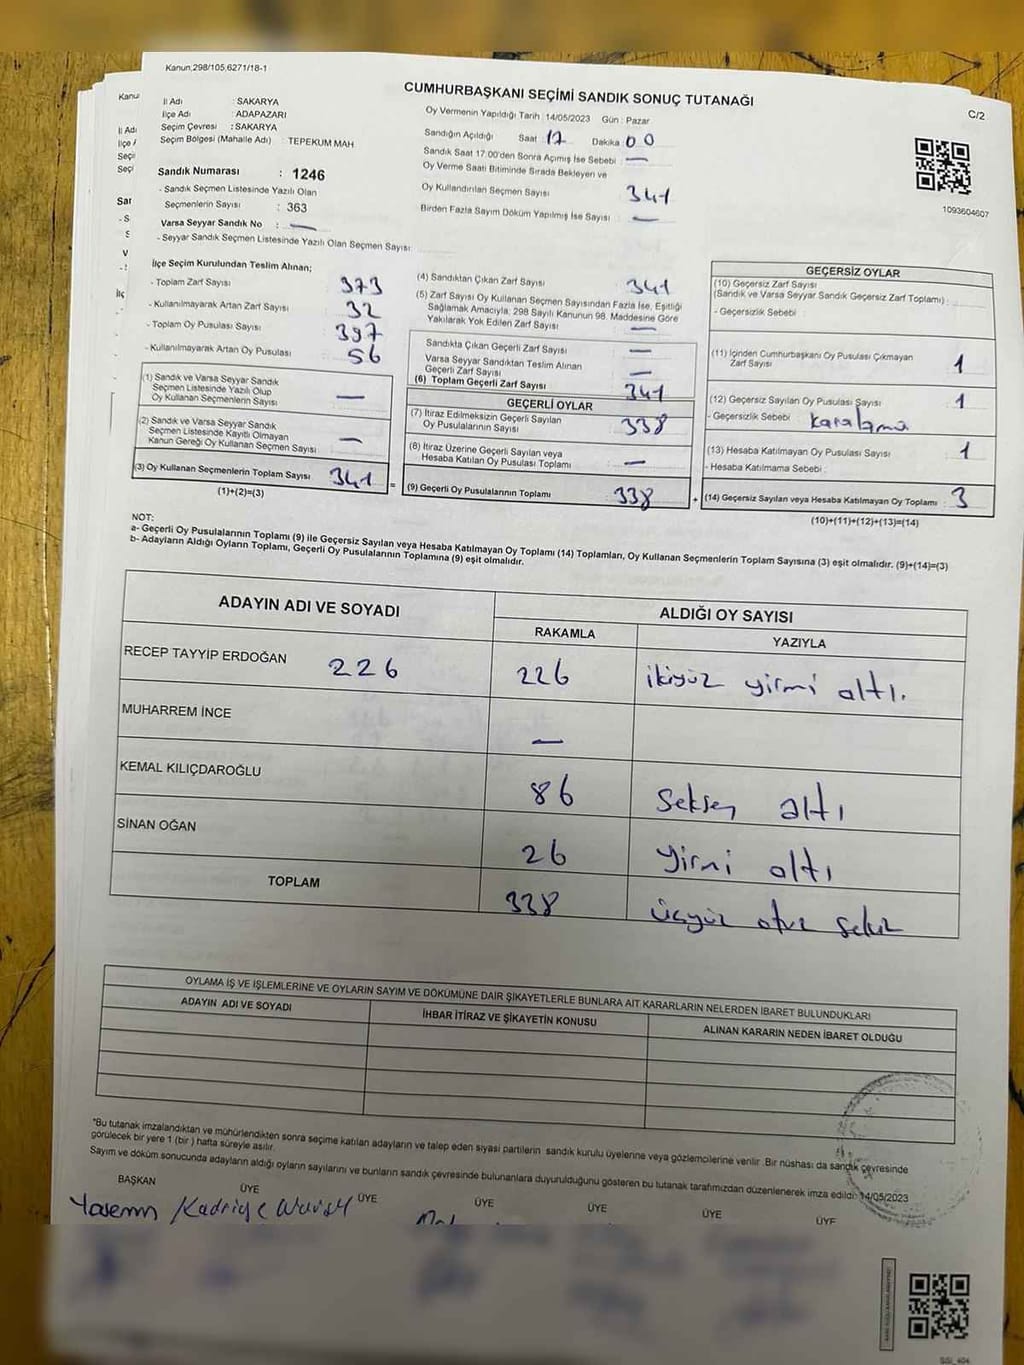 Kanun,298/105,6271/18-1
CUMHURBAŞKANI SEÇİMİ SANDIK SONUÇ TUTANAĞI
C/2
İl Adı : SAKARYA
İlçe Adı : ADAPAZARI
Seçim Çevresi : SAKARYA
Seçim Bölgesi (Mahalle Adı) TEPEKUM MAH
Sandık Numarası : 1246
- Sandık Seçmen Listesinde Yazılı Olan
Seçmenlerin Sayısı : 363
Varsa Seyyar Sandık No : —
- Seyyar Sandık Seçmen Listesinde Yazılı Olan Seçmen Sayısı:
Oy Vermenin Yapıldığı Tarih : 14/05/2023 Gün : Pazar
Sandığın Açıldığı Saat 17 Dakika 00
Sandık Saat 17:00'den Sonra Açımış İse Sebebi —
Oy Verme Saati Bitiminde Sırada Bekleyen ve
Oy Kullandırılan Seçmen Sayısı 341
Birden Fazla Sayım Döküm Yapılmış İse Sayısı —
1093604607
İlçe Seçim Kurulundan Teslim Alınan;
- Toplam Zarf Sayısı 373
- Kullanılmayarak Artan Zarf Sayısı 32
- Toplam Oy Pusulası Sayısı 397
- Kullanılmayarak Artan Oy Pusulası 56
(1) Sandık ve Varsa Seyyar Sandık
Seçmen Listesinde Yazılı Olup
Oy Kullanan Seçmenlerin Sayısı —
(2) Sandık ve Varsa Seyyar Sandık
Seçmen Listesinde Kayıtlı Olmayan
Kanun Gereği Oy Kullanan Seçmen Sayısı —
(3) Oy Kullanan Seçmenlerin Toplam Sayısı 341
(1)+(2)=(3)
(4) Sandıktan Çıkan Zarf Sayısı 341
(5) Zarf Sayısı Oy Kullanan Seçmen Sayısından Fazla İse, Eşitliği
Sağlamak Amacıyla, 298 Sayılı Kanunun 98. Maddesine Göre
Yakılarak Yok Edilen Zarf Sayısı —
Sandıkta Çıkan Geçerli Zarf Sayısı —
Varsa Seyyar Sandıktan Teslim Alınan
Geçerli Zarf Sayısı —
(6) Toplam Geçerli Zarf Sayısı 341
GEÇERLİ OYLAR
(7) İtiraz Edilmeksizin Geçerli Sayılan
Oy Pusulalarının Sayısı 338
(8) İtiraz Üzerine Geçerli Sayılan veya
Hesaba Katılan Oy Pusulası Toplamı —
= (9) Geçerli Oy Pusulalarının Toplamı 338
GEÇERSİZ OYLAR
(10) Geçersiz Zarf Sayısı
(Sandık ve Varsa Seyyar Sandık Geçersiz Zarf Toplamı) :
- Geçersizlik Sebebi :
(11) İçinden Cumhurbaşkanı Oy Pusulası Çıkmayan
Zarf Sayısı 1
(12) Geçersiz Sayılan Oy Pusulası Sayısı 1
- Geçersizlik Sebebi karalama
(13) Hesaba Katılmayan Oy Pusulası Sayısı 1
- Hesaba Katılmama Sebebi :
+ (14) Geçersiz Sayılan veya Hesaba Katılmayan Oy Toplamı : 3
(10)+(11)+(12)+(13)=(14)
NOT:
a- Geçerli Oy Pusulalarının Toplamı (9) ile Geçersiz Sayılan veya Hesaba Katılmayan Oy Toplamı (14) Toplamları, Oy Kullanan Seçmenlerin Toplam Sayısına (3) eşit olmalıdır. (9)+(14)=(3)
b- Adayların Aldığı Oyların Toplamı, Geçerli Oy Pusulalarının Toplamına (9) eşit olmalıdır.
ADAYIN ADI VE SOYADI
ALDIĞI OY SAYISI
RAKAMLA YAZIYLA
RECEP TAYYİP ERDOĞAN 226 226 ikiyüz yirmi altı.
MUHARREM İNCE —
KEMAL KILIÇDAROĞLU 86 seksen altı
SİNAN OĞAN 26 yirmi altı
TOPLAM 338 üçyüz otuz sekiz
OYLAMA İŞ VE İŞLEMLERİNE VE OYLARIN SAYIM VE DÖKÜMÜNE DAİR ŞİKAYETLERLE BUNLARA AİT KARARLARIN NELERDEN İBARET BULUNDUKLARI
ADAYIN ADI VE SOYADI İHBAR İTİRAZ VE ŞİKAYETİN KONUSU ALINAN KARARIN NEDEN İBARET OLDUĞU
*Bu tutanak imzalandıktan ve mühürlendikten sonra seçime katılan adayların ve talep eden siyasi partilerin sandık kurulu üyelerine veya gözlemcilerine verilir. Bir nüshası da sandık çevresinde
görülecek bir yere 1 (bir ) hafta süreyle asılır.
Sayım ve döküm sonucunda adayların aldığı oyların sayılarını ve bunların sandık çevresinde bulunanlara duyurulduğunu gösteren bu tutanak tarafımızdan düzenlenerek imza edildi. 14/05/2023
BAŞKAN ÜYE ÜYE ÜYE ÜYE ÜYE ÜYE
Kadriye